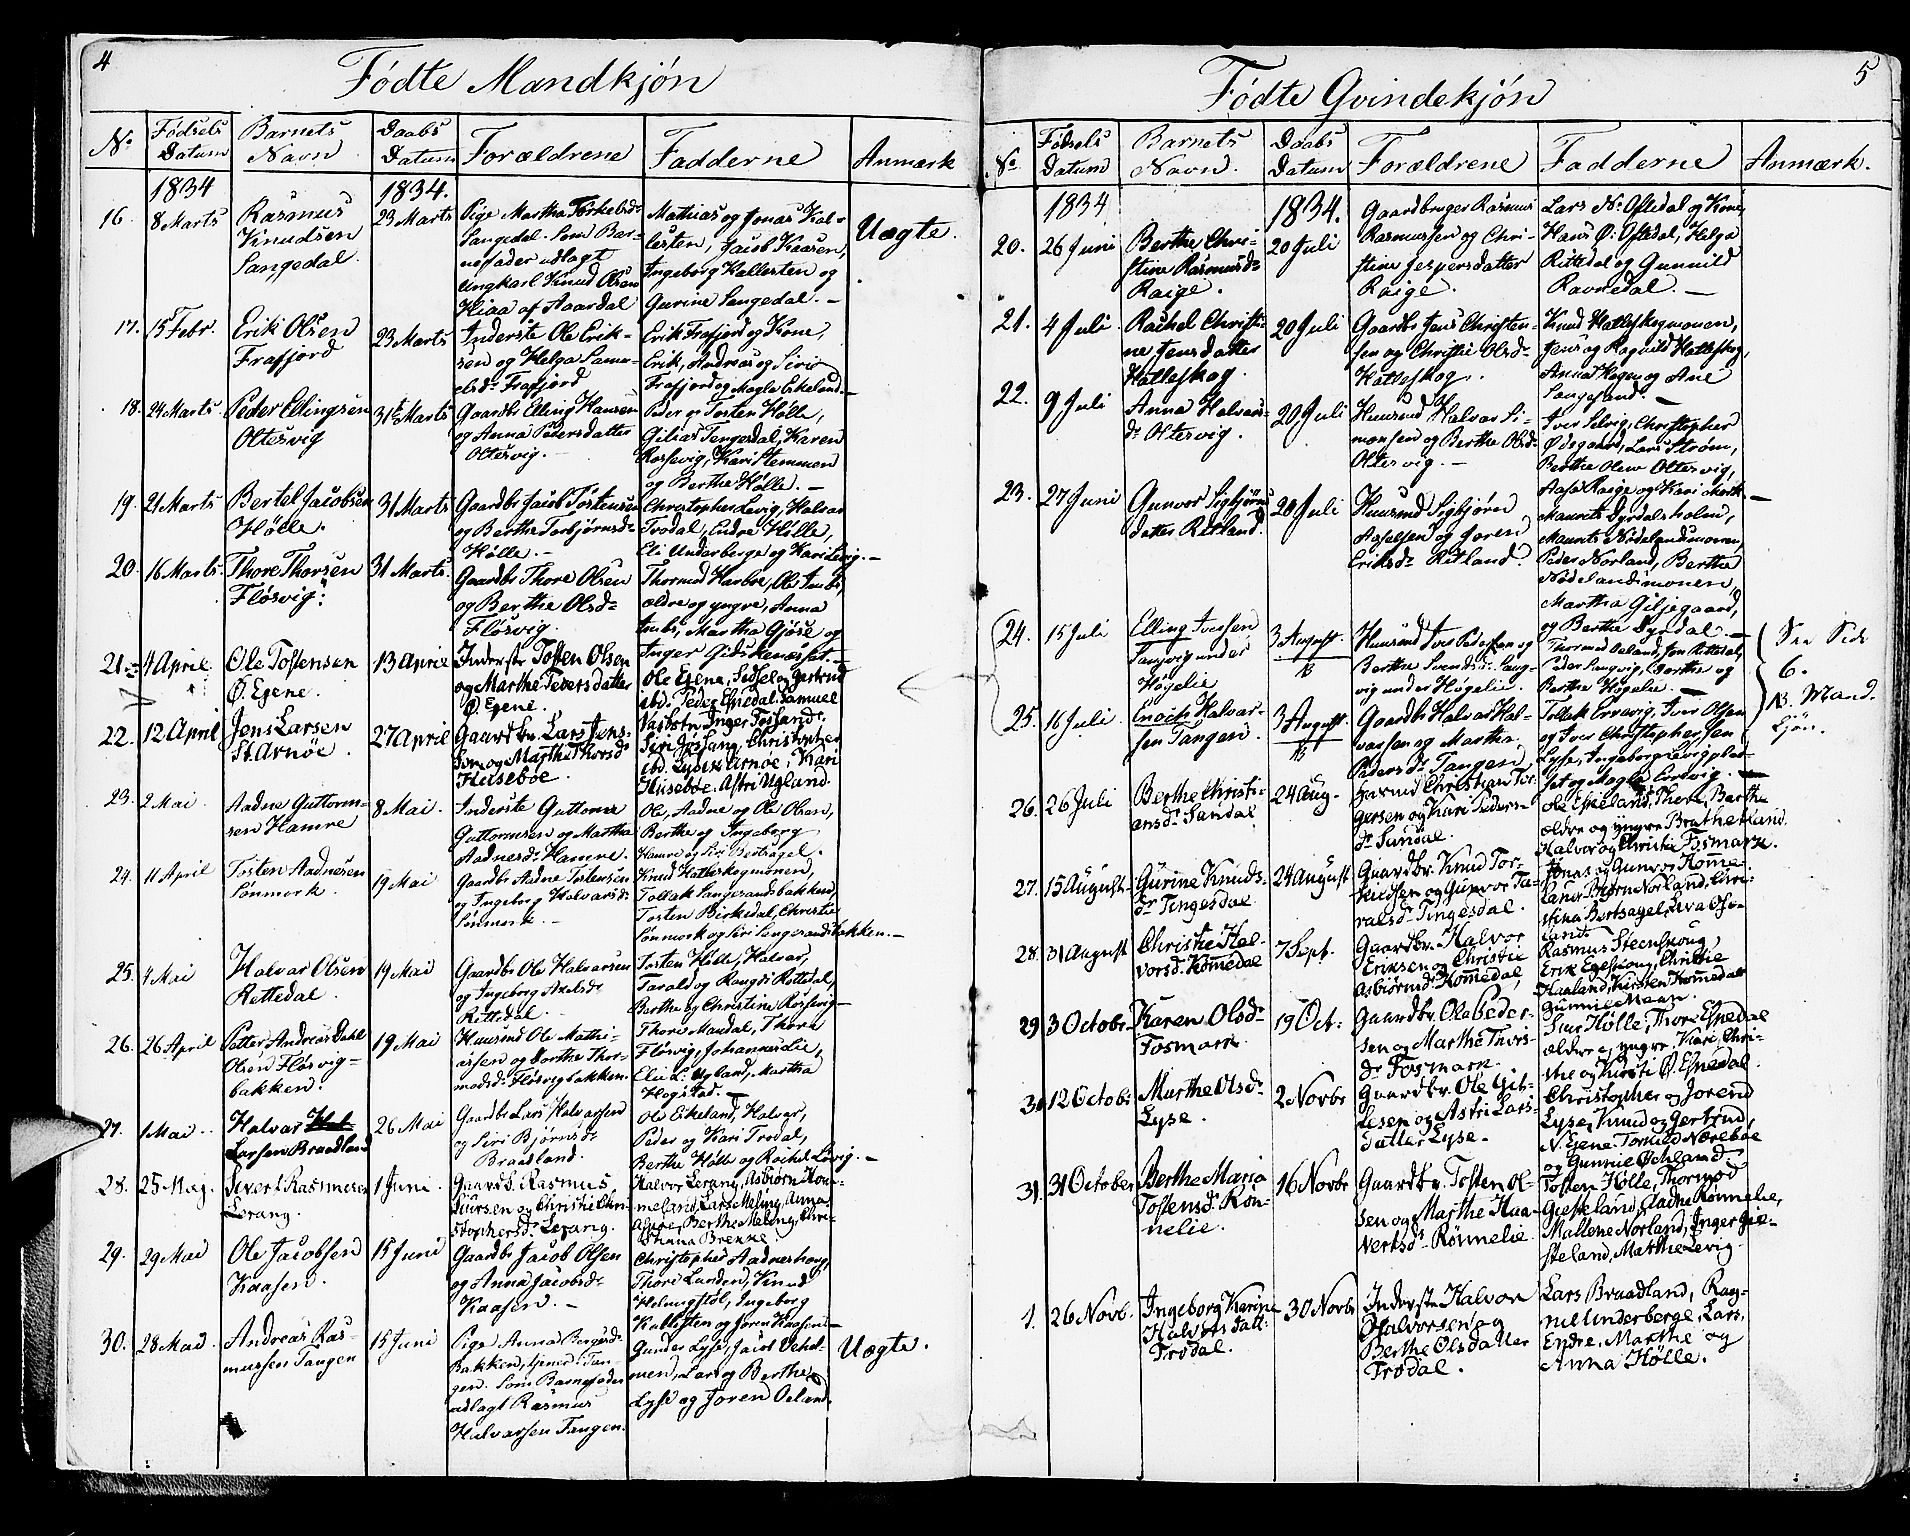 4
Fødte Mandkjön
No Fødsels Datum Barnets Navn Daabs Datum Forældrene Fadderne Anmærk
1834 1834.
16. 8 Marts Rasmus Knudsen Sangedal. 23 Marts
Pige Martha Torkelsdr
Sangedal. Som Bar-
nefader udlagt
Ungkarl Knud Olsen
Hiaa af Aardal
Mathias og Jonas Kal-
lesten, Jacob Kaasen,
Ingeborg Kallesten og
Gurine Sangedal. —
Uægte.
17. 15 Febr. Erik Olsen Frafjord 23 Marts
Inderste Ole Erik-
sen og Helga Samu-
elsdr Frafjord
Erik Frafjord og Kone,
Erik, Andreas og Siri
Frafjord og Magla Eikeland.
18. 24 Marts Peder Ellingsen Oltesvig 31te Marts
Gaardbr Elling Hansen
og Anna Pedersdatter
Oltesvig. —
Peder og Tosten Hølle,
Gilias Tengesdal, Karen
Rossevig, Kari Stemmen
og Berthe Hølle. —
19. 21 Marts Bertel Jacobsen Hölle. 31 Marts
Gaardbr Jacob Tostensen
og Berthe Torbjørnsdr
Hölle. —
Christopher Levig, Halvar
Trodal, Endre Hölle,
Eli Underberge og Kari Levig. —
20. 16 Marts. Thore Thorsen Fløsvig. 31 Marts
Gaardbr Thore Olsen
og Berthe Olsdr
Fløsvig.
Thormod Harboe, Ole Imbs,
ældre og yngre, Anna
Imbs, Martha Gjöse og
Inger Gidskenæsset. —
21. 4 April. Ole Tostensen Ø. Egene. 13 April
Inderste Tosten Olsen
og Marthe Peersdatter
Ø. Egene.
Ole Egene, Sidsel og Gertrud
ibd. Peder Eskedal. Samuel
22. 12 April Jens Larsen St. Arnöe. 27 April
Gaardbr. Lars Jens-
sen og Marthe Thorsdr
Huseböe.
Siri Jössang, Christopher
ibd. Lyder Arnöe, Kari
Huseböe. Astri Ugland
23. 2 Mai. Aadne Guttorm-sen Hamre 8 Mai.
Inderste Guttorm
Guttormsen og Martha
Aadnesdr Hamre.
Ole, Aadne og Ole Olsen,
Berthe og Ingeborg
Hamre og Siri Bertragel.
24. 11 April Tosten Aadnesen Lönmork. 19 Mai
Gaardbr Aadne Tostensen
og Ingeborg Halvarsdr
Lönmork. —
Knud Hatleskogmonen,
Tollak Sangesandsbakken,
Tosten Birkedal, Christie
Lönmork og Siri Sangesandsbakken. —
25. 4 Mai Halvar Olsen Rettedal. 19 Mai
Gaardbr Ole Halvarsen
og Ingeborg Axelsdr
Rettedal. —
Tosten Hölle, Halvar,
Tarald og Rangdi Rettedal,
Berthe og Christine Rossevig —
26. 26 April Petter Andreas Dahl Olsen Flösvig-bakken. 19 Mai
Huusmd Ole Mathi-
assen og Dorthe Thor-
modsdr Flösvigbakken.
Thore Maudal, Thore
Flösvig, Johannes Lie,
Eli L. Ugland, Martha
Hogstad. —
27. 1 Mai Halvar Larsen Braadland 26 Mai
Gaardbr Lars Halvarsen
og Siri Bjørnsdr
Braadland.
Ole Eikeland, Halvar,
Peder og Kari Trodal,
Berthe Hölle og Rachel Levig. —
28. 25 Maj. Sivert Rasmusen Lerang. 1 Juni.
Gaardbr. Rasmus
Siursen og Christie Chri-
stophersdr Lerang.
Halvor Lerang, Asbjørn Hom-
meland, Lars Meling, Anna
Berthe Meling, Chri-
stiana Brekke
29. 29 Mai Ole Jacobsen Kaasen. 15 Juni
Gaardbr Jacob Olsen
og Anna Jacobsdr
Kaasen. —
Christopher Aadneskoug,
Thore Lunden, Knud
Helmigstöl, Ingeborg
Kallesten og Jøren Kaasen —
30. 28 Mai Andreas Ras-mussen Tangen 15 Juni
Pige Anna Bergesdr
Bakken, tjener i Tan-
gen. Som Barnefader
udlagt Rasmus
Halvarsen Tangen.
Gunder Lyse, Jacob Oehol-
men, Lars og Berthe
Lyse og Joren Oeland.
Uægte.
5
Fødte Qvindekjön
No Fødsels Datum Barnets Navn. Daabs Datum Forældrene Fadderne Anmærk.
1834 1834.
20. 26 Juni Berthe Chri-stine Rasmusdr Raige. 20 Juli
Gaardbruger Rasmus
Rasmussen og Chri-
stine Jespersdatter
Raige.
Lars N. Oftedal og Kone,
Hans Ø. Oftedal, Helga
Rittedal og Gunnild
Ravnedal. —
21. 4 Juli Rachel Christi-ne Jensdatter Hatleskog. 20 Juli
Gaardbr Jens Christen-
sen og Christie Olsdr
Hatleskog.
Knud Hatleskogmonen,
Jens og Ragnild Hatleskog,
Anna Hogen og Ane
Sangesand. —
22. 9 Juli Anna Halvars-dr Oltesvig. 20 Juli
Huusmd Halvar Si-
monsen og Berthe Olsdr
Oltesvig. —
Iver Selvig, Christopher
Ødegaard, Lars Strøm,
Berthe Olem Oltesvig,
Aasa Raige og Kari Mork —
23. 27 Juni Gunvor Sigbjørns datter Ritland. 20 Juli
Huusmd Sigbjörn
Asselsen og Joren
Eriksdr Ritland.
Maurits Dyrdalsholm,
Maurits Nödelandsmonen,
Peder Norland, Berthe
Nödelandsmonen,
Martha Giljegaard,
og Berthe Dyrdal —
24. 15 Juli Elling Ivessen Sangvig under Høgelie 3 August
Huusmd Ives Pedersen og
Berthe Svendsdr Sang-
vig under Høgelie.
Thormod Oeland, Jon Rettedal,
Peder Sangvig, Dorthe og
Berthe Høgelie. —
See Side
6.
B. Mand-
kjön.
25. 16 Juli Enoch Halvar-sen Tangen. 3 August.
Gaardbr Halvar Hal-
varssen og Martha
Pedersdr Tangen
Tollak Ervevig, Iver Olsen
og Iver Christophersen
Lyse, Ingeborg Levigplad-
set og Magla Lortvig. —
26. 26 Juli Berthe Christi-ansdr Sandal 24 Aug.
Huusmd Christian Tor-
gersen og Kari Peders-
dr Sandal.
Ole Eskeland, Thore, Berthe
ældre og yngre Bratheland.
Halvor og Christie Fosmark.
27. 15 August Gurine Knuds-dr Tingesdal 24 August
Gaardbr. Knud Tor-
kildsen og Gunvor Ta-
raldsdr Tingesdal.
Jonas og Gunvor Homme-
land, Bjørn Norland, Chri-
stina Bertsagel,
28. 31 August Christie Hal-vorsdr Komedal 7 Sept.
Gaardbr. Halvor
Eriksen og Christie
Asbiörnsdr Komedal,
Rasmus Steenskoug,
Erik Egeskoug, Christie
Haaland, Kirsten Kommedal
Gunnil Maan.
29 3 Octobr Karen Olsdr Fosmark. 19 Oct.
Gaardbr. Ole Peder-
sen og Marthe Ivers-
dr Fosmark.
Siur Hölle, Thore Eskedal
ældre og yngre, Kari, Chri-
stie og Kirsti Ø. Eskedal
30 12 Octobr Marthe Olsdr Lyse. 2 Novbr
Gaardbr. Ole Git-
lesen og Astri Lars-
datter Lyse.
Christopher og Jorend
Lyse, Knud og Gertrud
N. Egene. Tormod Nærebøe
og Gunnil Ocheland.
31. 31 October Berthe Maria Tostensdr Røn-nelie. 16 Novbr
Gaardbr. Tosten Ol-
sen og Marthe Haa-
vertsdr Rønnelie.
Tosten Hölle, Thormod
Gieseland, Aadne Rønnelie,
Mallene Norland, Inger Gie-
seland, Marthe Levig.
1. 26 Novb. Ingeborg Karine Halvorsdatt. Trodal. 30 Novbr
Inderste Halvor
Halvorsen og
Berthe Olsdatter
Trodal.
Lars Braadland, Rag-
nil Underberge, Lars,
Endre, Marthe og
Anna Hölle.